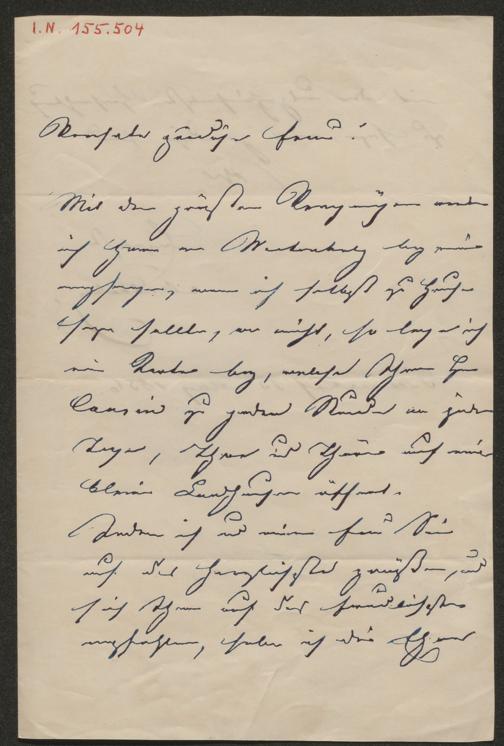 I.N. 155.504
Verehrte gnädige Frau!
Mit dem größten Vergnügen werde
ich Ihnen am Wartenberg bey mir
empfangen, wenn ich selbst zu Hause
seyn sollte, wo nicht, so lege ich
eine Karte bey, welche Ihnen
Cousin zu jeder Stunde an jedem
Tage, Thor und Thüre auf mein
kleines Landhaus öffnet.
Indem ich und meine Frau Sie
auf das herzlichste grüßen, und
sich Ihnen auf das freundlichste
empfehlen, habe ich die Ehre